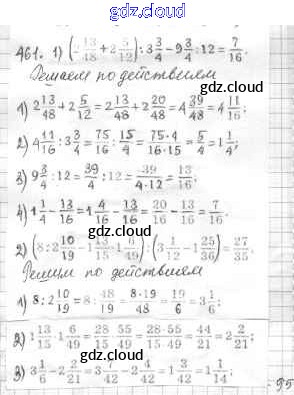 gdz.cloud
461. 1) (2 13/48 + 2 5/12) : 3 3/4 - 9 3/4 : 12 = 7/16.
gdz.cloud
Решаем по действиям
1) 2 13/48 + 2 5/12 = 2 13/48 + 2 20/48 = 4 33/48 = 4 11/16;
gdz.cloud
2) 4 11/16 : 3 3/4 = 75/16 : 15/4 = 75·4/16·15 = 5/4 = 1 1/4;
3) 9 3/4 : 12 = 39/4 : 12 = 39/4·12 = 13/16.
gdz.cloud
4) 1 1/4 - 13/16 = 1 4/16 - 13/16 = 20/16 - 13/16 = 7/16.
gdz.cloud
2) (8 : 2 10/19 - 1 13/15 · 1 6/49) : (3 1/12 - 1 25/36) = 27/35.
Решим по действиям
gdz.cloud
1) 8 : 2 10/19 = 8 : 48/19 = 8·19/48 = 19/6 = 3 1/6;
gdz.cloud
2) 1 13/15 · 1 6/49 = 28/15 · 55/49 = 28·55/15·49 = 44/21 = 2 2/21;
gdz.cloud
3) 3 1/6 - 2 2/21 = 3 7/42 - 2 4/42 = 1 3/42 = 1 1/14;
gdz.cloud